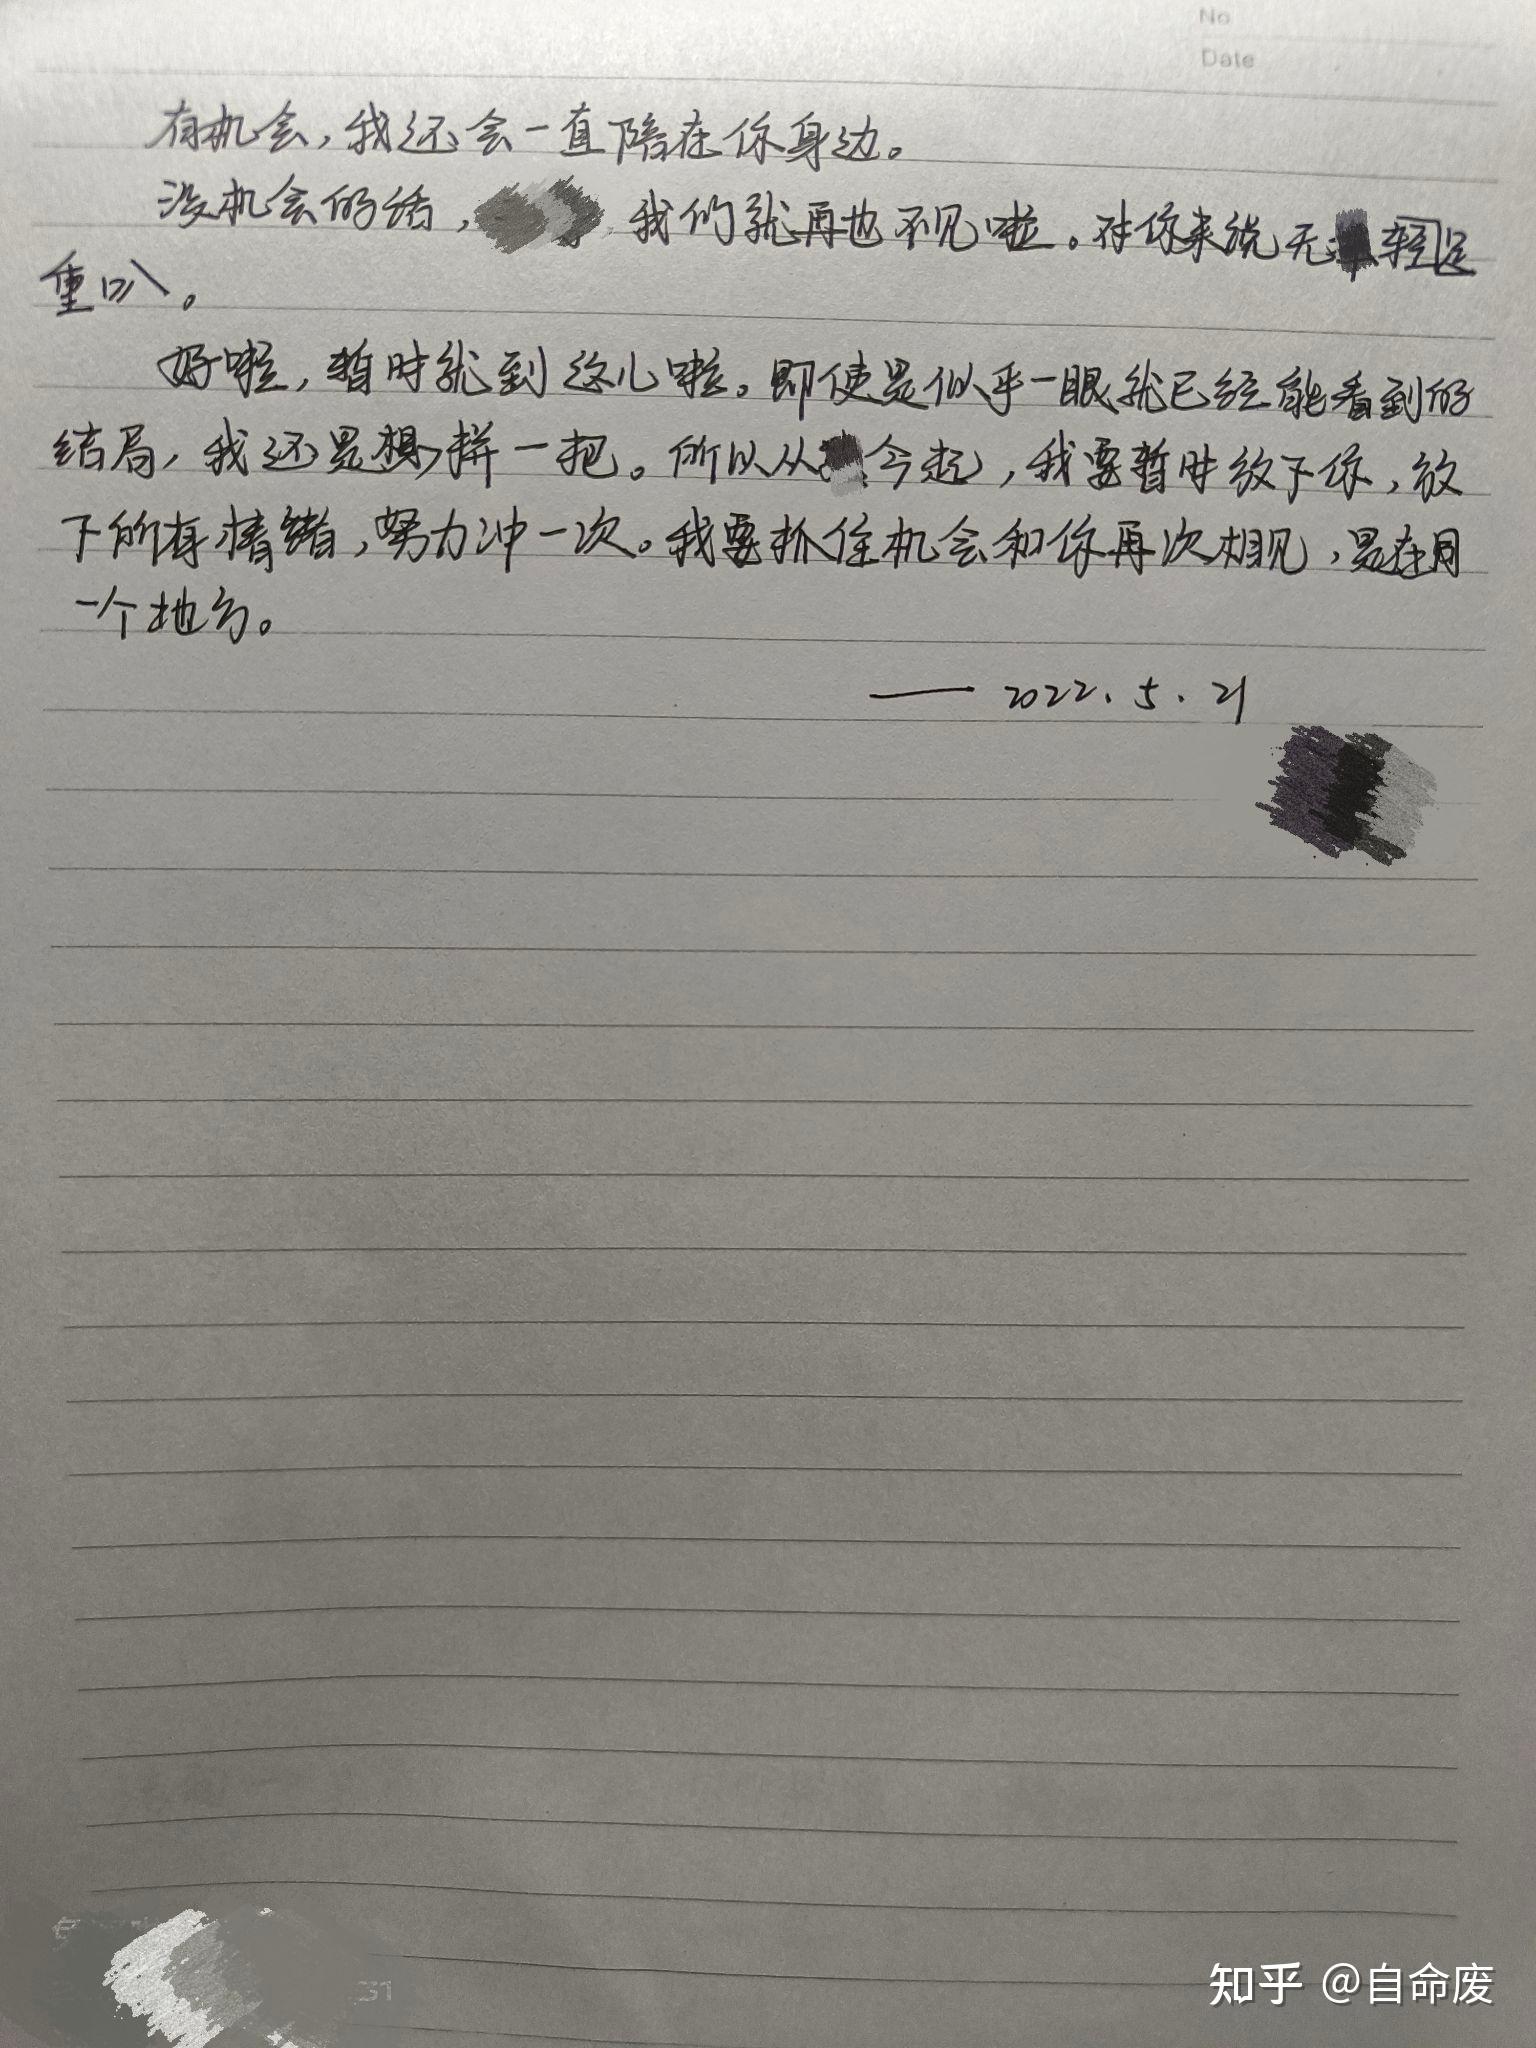 No
Date
有机会，我还会一直陪在你身边。
没机会的话，我们就再也不见啦。对你来说无轻足
重叭。
好啦，暂时就到这儿啦。即使是似乎一眼就已经能看到的
结局，我还是想拼一把。所以从今起，我要暂时放下你，放
下所有情绪，努力冲一次。我要抓住机会和你再次相见，是在同
一个地方。
—— 2022.5.21
知乎 @自命废